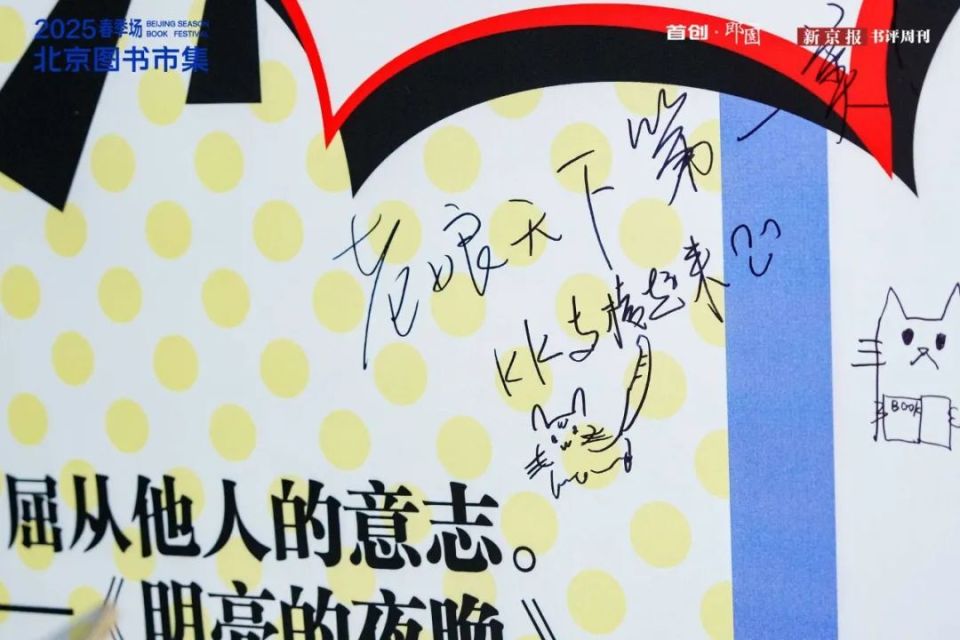 2025春季场 BEIJING SEASON BOOK FESTIVAL
北京图书市集
首创·郎园
新京报 书评周刊
老娘天下第一
KK支棱起来
BOOK
屈从他人的意志。
——《明亮的夜晚》